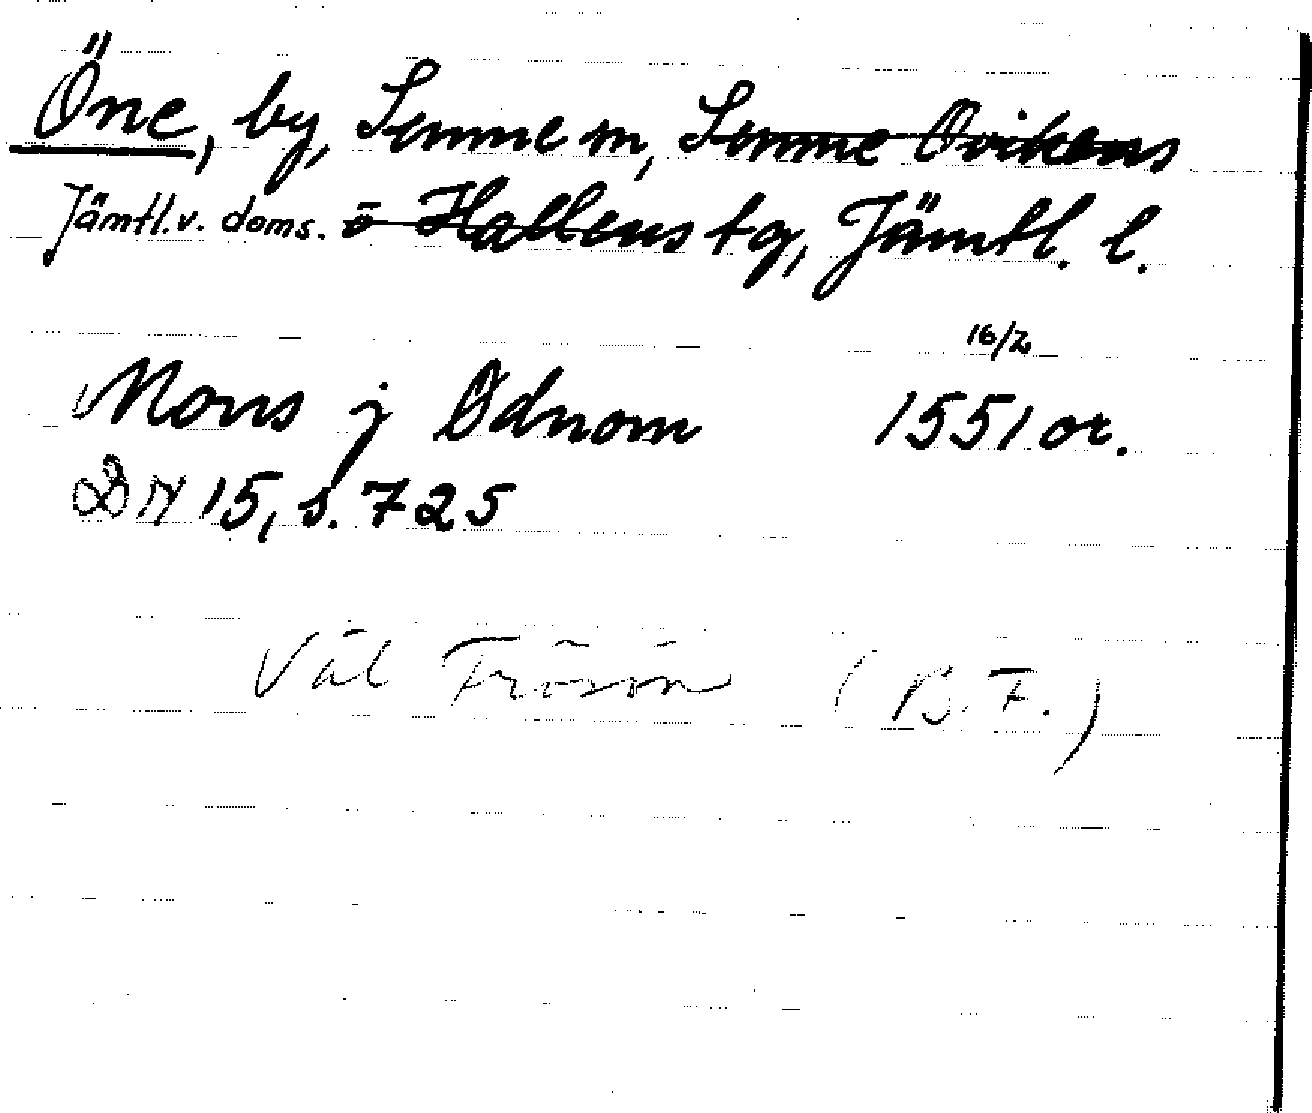 Öne, by, Sunne sn, Sunne Ovikens
Jämtl.v. doms. o Hallens tg, Jämtl. l.
16/2
Mons j Ødnom 1551 or.
DN 15, s. 725
Väl Frösön (B.F.)